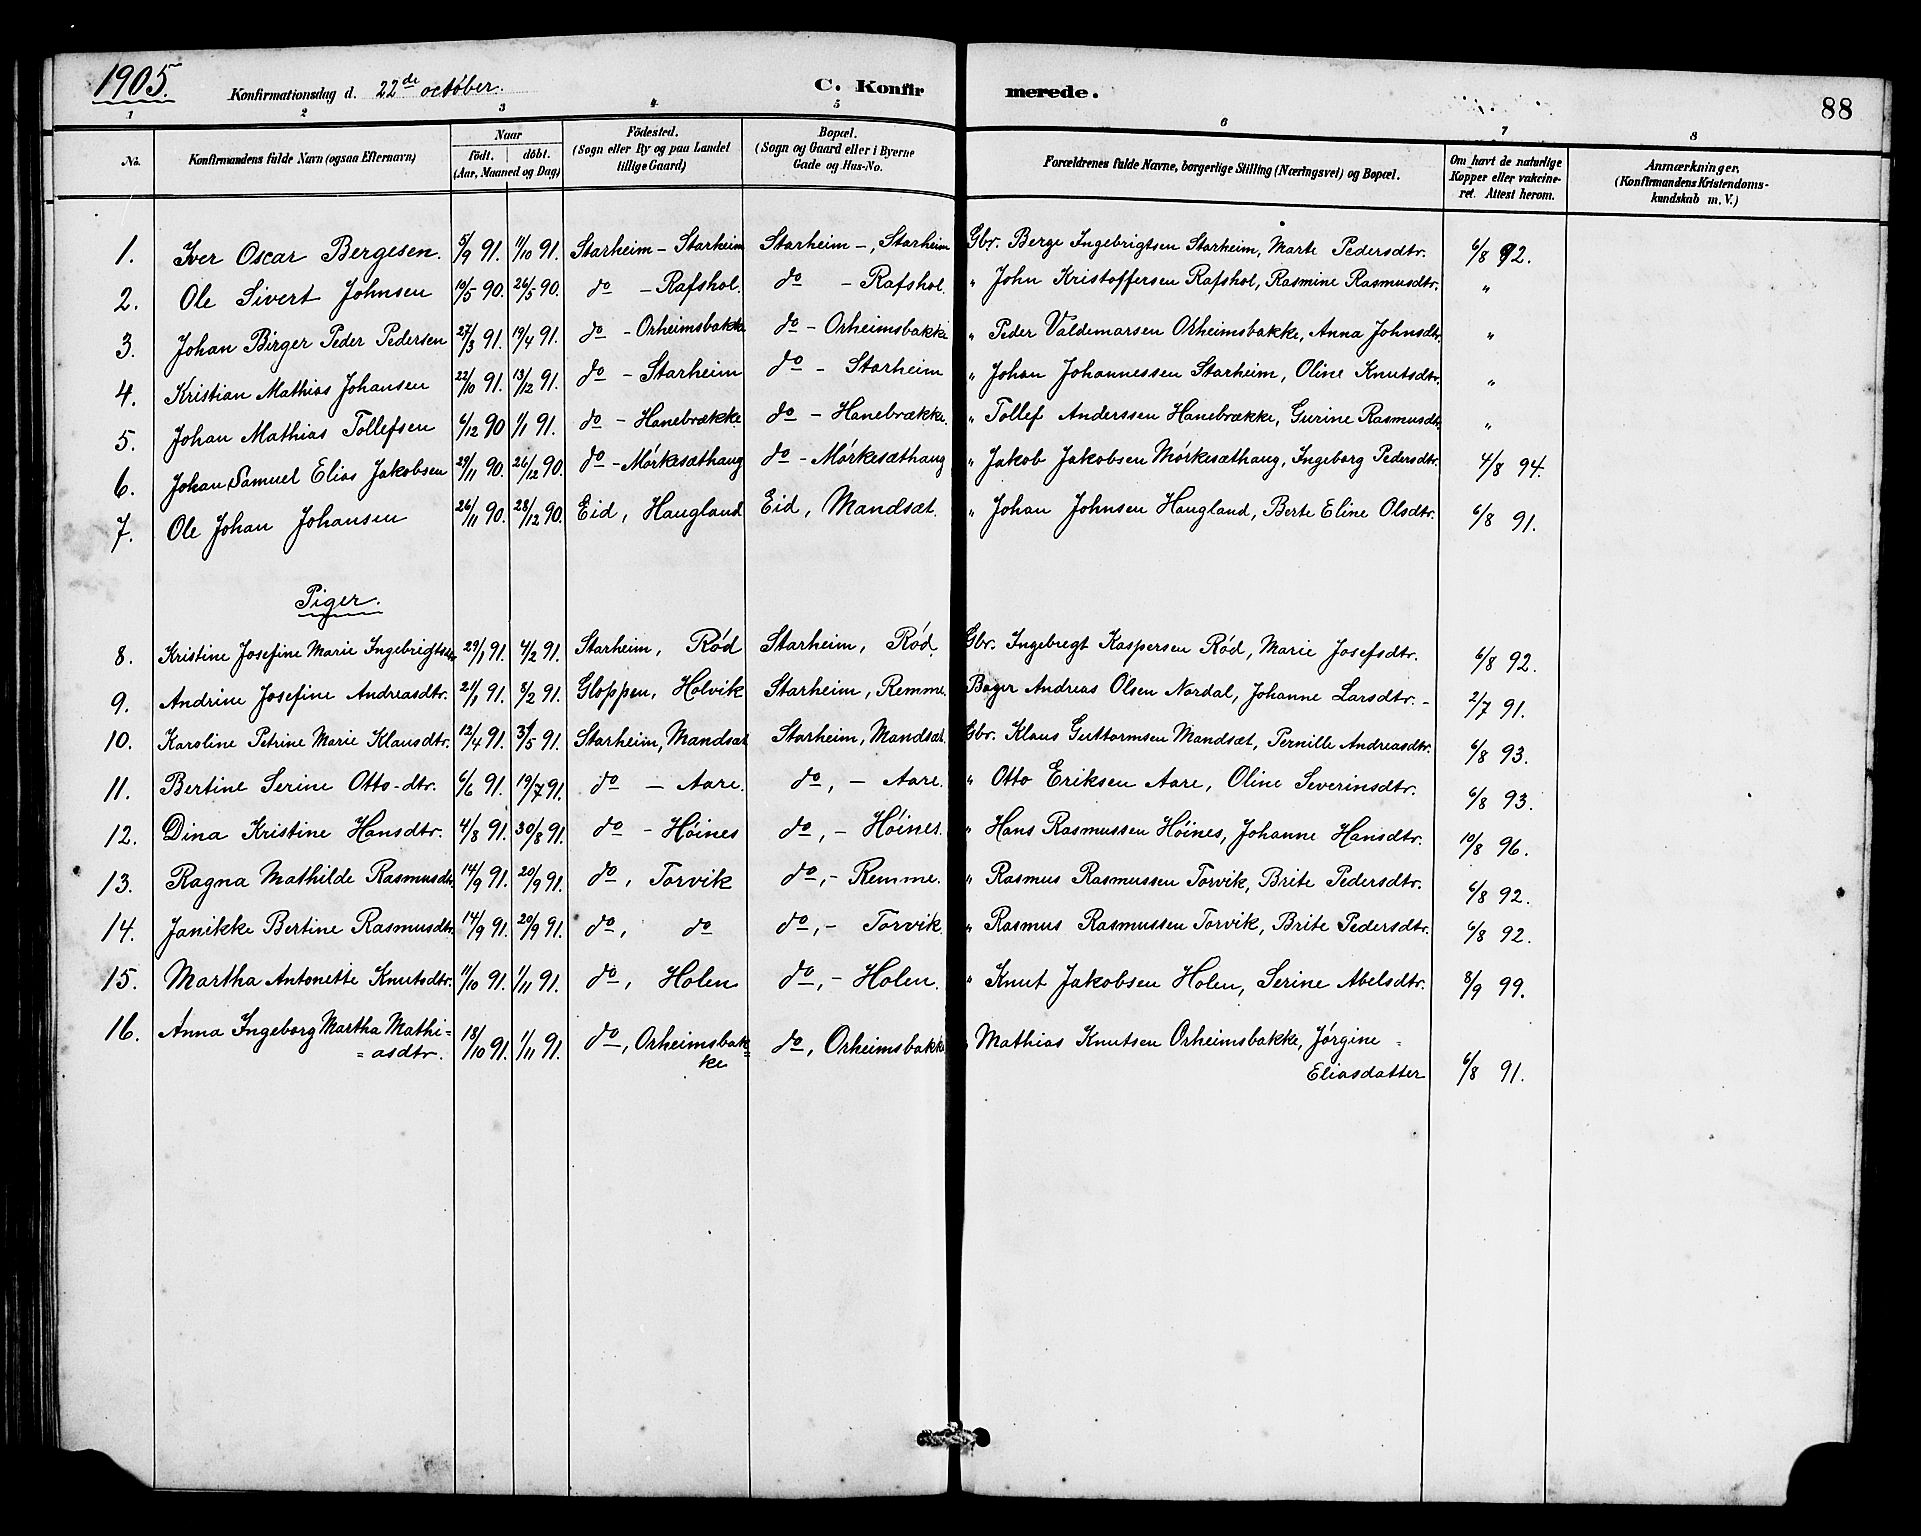 1905.
Konfirmationsdag d. 22de october.
C. Konfirmerede.
88
1 2 3 4 5 6 7 8
No.
Konfirmandens fulde Navn (ogsaa Efternavn)
Naar
födt. döbt.
(Aar, Maaned og Dag)
Födested.
(Sogn eller By og paa Landet
tillige Gaard)
Bopæl.
(Sogn og Gaard eller i Byerne
Gade og Hus-No.
Forældrenes fulde Navne, borgerlige Stilling (Næringsvei) og Bopæl.
Om havt de naturlige
Kopper eller vakcine-
ret. Attest herom.
Anmærkninger.
(Konfirmandens Kristendoms-
kundskab m. V.)
1. Iver Oscar Bergesen. 5/9 91. 11/10 91. Starheim - Starheim Starheim -, Starheim Gbr. Berge Ingebrigtsen Starheim, Marte Pedersdtr. 6/8 92.
2. Ole Sivert Johnsen 10/5 90. 26/5 90. do - Rafshol. do - Rafshol. " John Kristoffersen Rafshol, Rasmine Rasmusdtr. "
3. Johan Birger Peder Pedersen 27/3 91. 19/4 91. do - Orheimsbakke do - Orheimsbakke " Peder Valdemarsen Orheimsbakke, Anna Johnsdtr. "
4. Kristian Mathias Johansen 22/10 91. 13/12 91. do - Starheim do - Starheim " Johan Johannessen Starheim, Oline Knutsdtr. "
5. Johan Mathias Tollefsen 6/12 90 1/1 91. do - Hanebrække do - Hanebrække. " Tollef Anderssen Hanebrække, Gurine Rasmusdtr "
6. Johan Samuel Elias Jakobsen 29/11 90. 26/12 90. do - Mørkesæthaug do - Mørkesæthaug " Jakob Jakobsen Mørkesæthaug, Ingeborg Pedersdtr. 4/8 94.
7. Ole Johan Johansen 26/11 90. 28/12 90. Eid, Haugland Eid, Mandsæt. " Johan Johnsen Haugland, Berte Eline Olsdtr. 6/8 91.
Piger.
8. Kristine Josefine Marie Ingebrigtsdtr 29/1 91. 4/2 91. Starheim, Rød Starheim, Rød. Gbr. Ingebregt Kaspersen Rød, Marie Josefsdtr. 6/8 92.
9. Andrine Josefine Andreasdtr. 21/1 91. 8/2 91. Gloppen, Holvik Starheim, Remme. Bager Andreas Olsen Nordal, Johanne Larsdtr. - 2/7 91.
10. Karoline Petrine Marie Klausdtr. 12/4 91. 31/5 91. Starheim, Mandsæt Starheim, Mandsæt. Gbr. Klaus Guttormsen Mandsæt, Pernille Andreasdtr. 6/8 93.
11. Bertine Serine Otto-dtr. 6/6 91. 19/7 91. do - Aare. do, - Aare. " Otto Eriksen Aare, Oline Severinsdtr. 6/8 93.
12. Dina Kristine Hansdtr. 4/8 91. 30/8 91. do - Høines do, - Høines. " Hans Rasmussen Høines, Johanne Hansdtr. 10/8 96.
13. Ragna Mathilde Rasmusdtr. 14/9 91. 20/9 91. do, Torvik do, - Remme. " Rasmus Rasmussen Torvik, Brite Pedersdtr. 6/8 92.
14. Janikke Bertine Rasmusdtr. 14/9 91. 20/9 91. do, do do, - Torvik. " Rasmus Rasmussen Torvik, Brite Pedersdtr. 6/8 92.
15. Martha Antonette Knutsdtr. 11/10 91. 1/11 91. do, Holen do, - Holen. " Knut Jakobsen Holen, Serine Abelsdtr. 8/9 99.
16. Anna Ingeborg Martha Mathi=
=asdtr. 18/10 91. 1/11 91. do, Orheimsbak=
ke do, Orheimsbakke " Mathias Knutsen Orheimsbakke, Jørgine =
Eliasdatter 6/8 91.